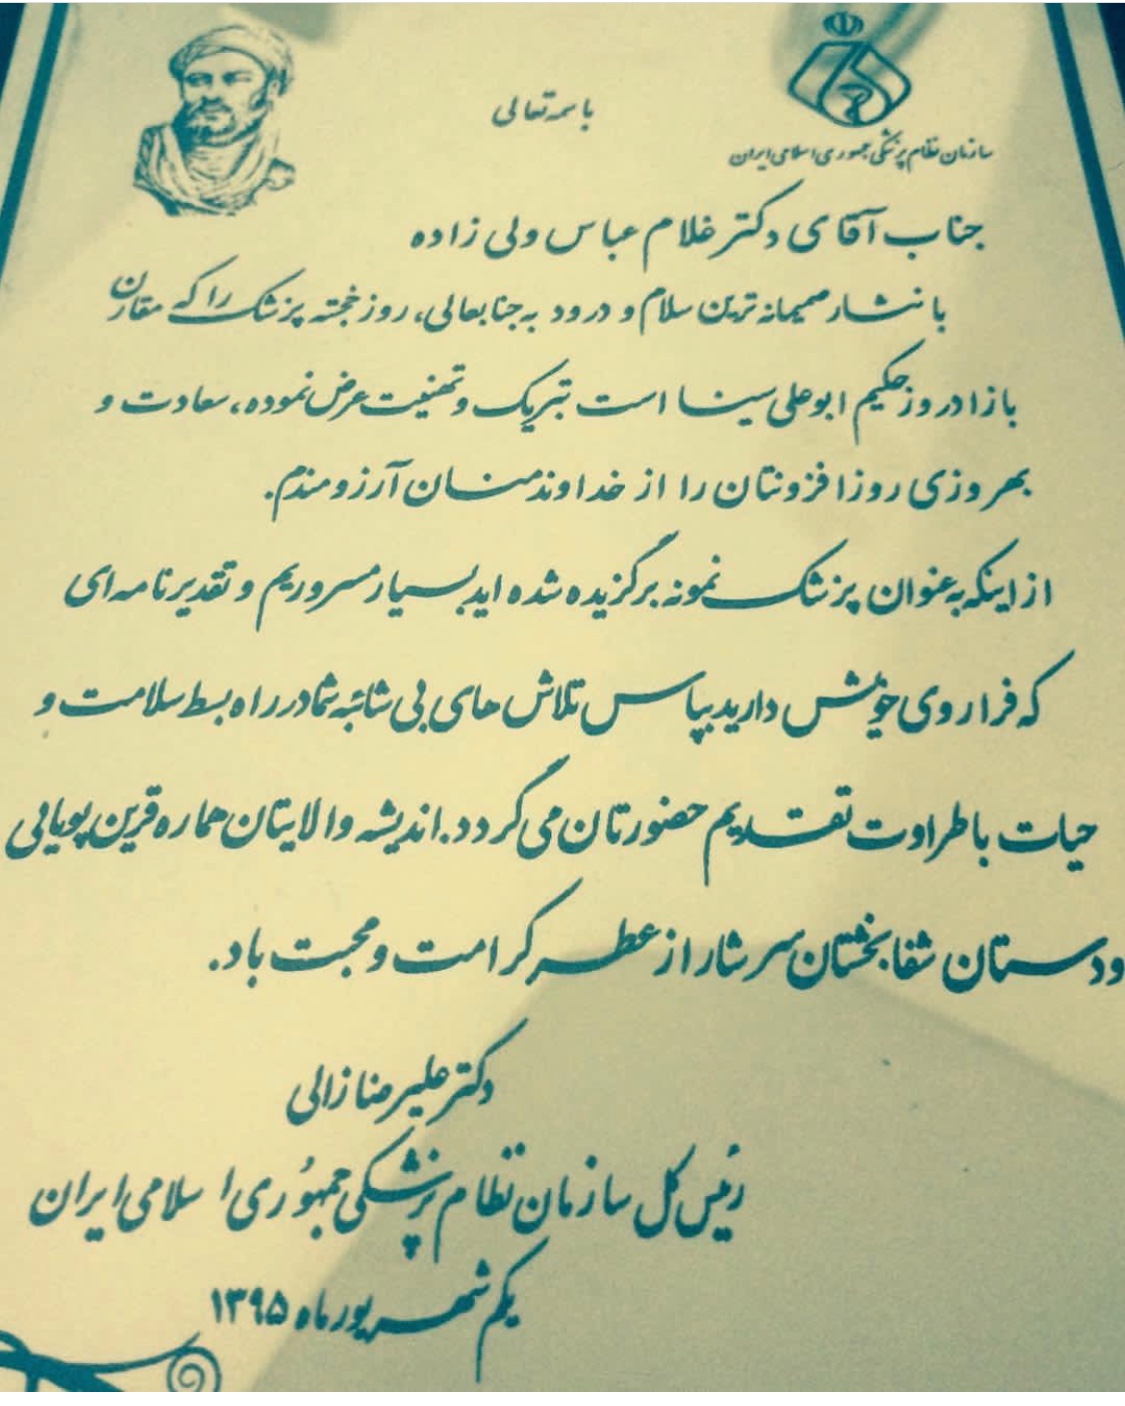 باسمه تعالی
سازمان نظام پزشکی جمهوری اسلامی ایران
جناب آقای دکتر غلام عباس ولی زاده
با نثار صمیمانه ترین سلام و درود به جنابعالی، روز خجسته پزشک را که مقارن
با زادروز حکیم ابوعلی سینا است تبریک و تهنیت عرض نموده، سعادت و
بهروزی روزافزونتان را از خداوند منان آرزومندم.
از اینکه به عنوان پزشک نمونه برگزیده شده اید بسیار مسروریم و تقدیرنامه ای
که فراروی خویش دارید بپاس تلاش های بی شائبه شما در راه بسط سلامت و
حیات با طراوت تقدیم حضورتان می گردد. اندیشه والایتان هماره قرین پویایی
و دستان شفابخشتان سرشار از عطر کرامت و محبت باد.
دکتر علیرضا زالی
رئیس کل سازمان نظام پزشکی جمهوری اسلامی ایران
یکم شهریورماه ۱۳۹۵